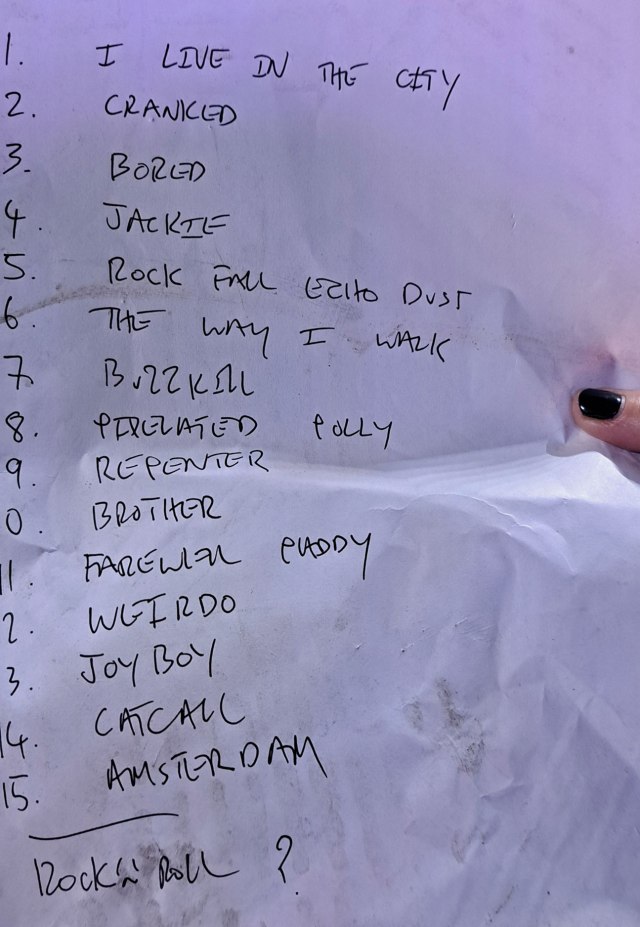 1. I LIVE IN THE CITY
2. CRANKED
3. BORED
4. JACKIE
5. ROCK FALL ECHO DUST
6. THE WAY I WALK
7 BUZZKILL
8. PIXELATED POLLY
9. REPENTER
0. BROTHER
11. FAREWELL PADDY
2. WEIRDO
3. JOYBOY
14. CATCALL
15. AMSTERDAM
ROCK'N'ROLL ?